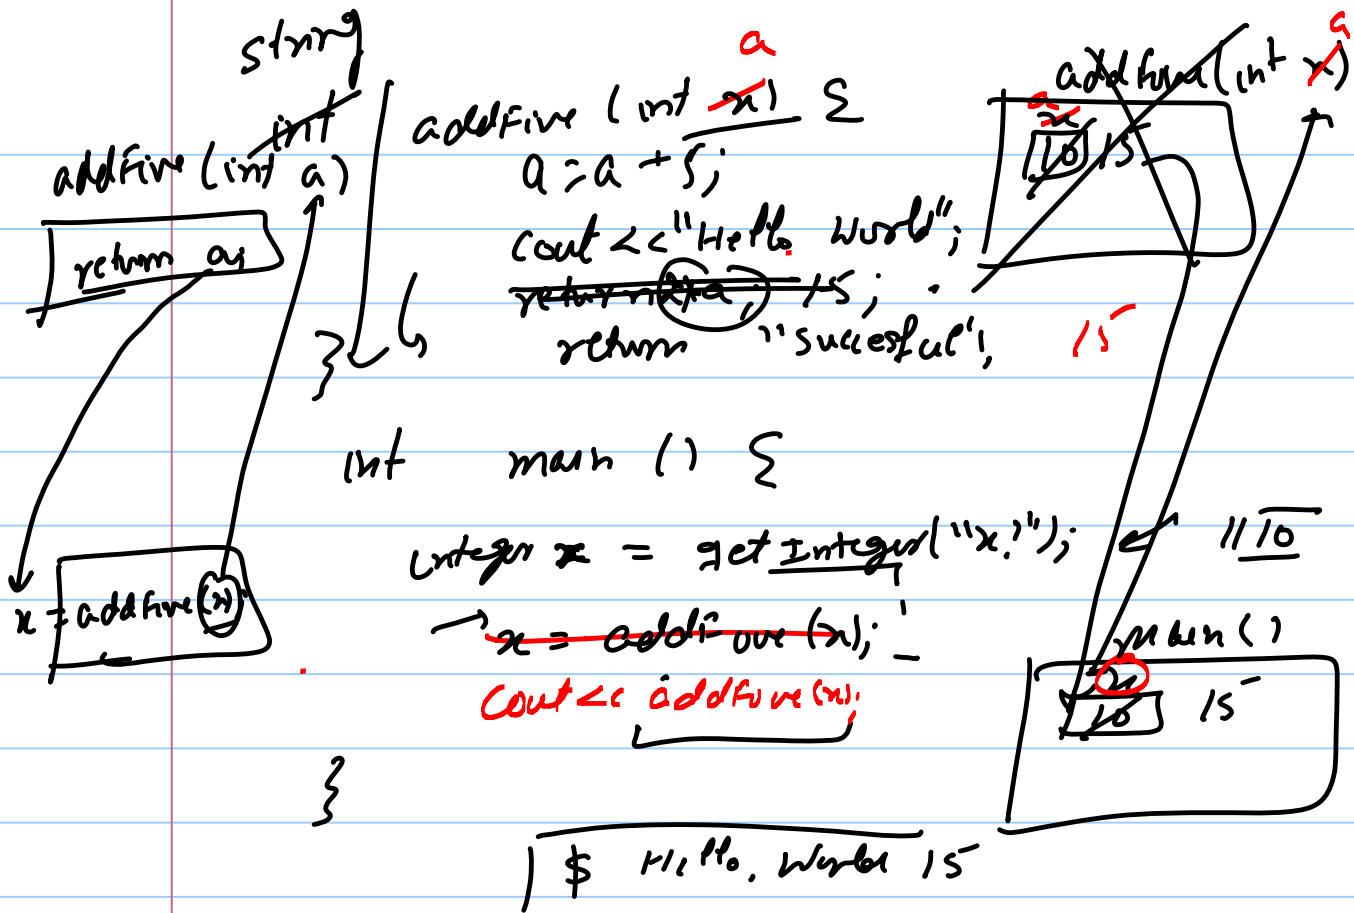 string
int
addFive (int a)
return a;
x = addFive (x)
a
addFive (int x) {
a = a + 5;
cout << "Hello World";
15;
return "Succesful";
}
int main () {
integer x = getInteger("x?"); // 10
x = addFive (x);
cout << addFive (x);
}
$ Hello, World 15
a
addFive (int x)
a
x
10 15
15
main ()
x
10 15